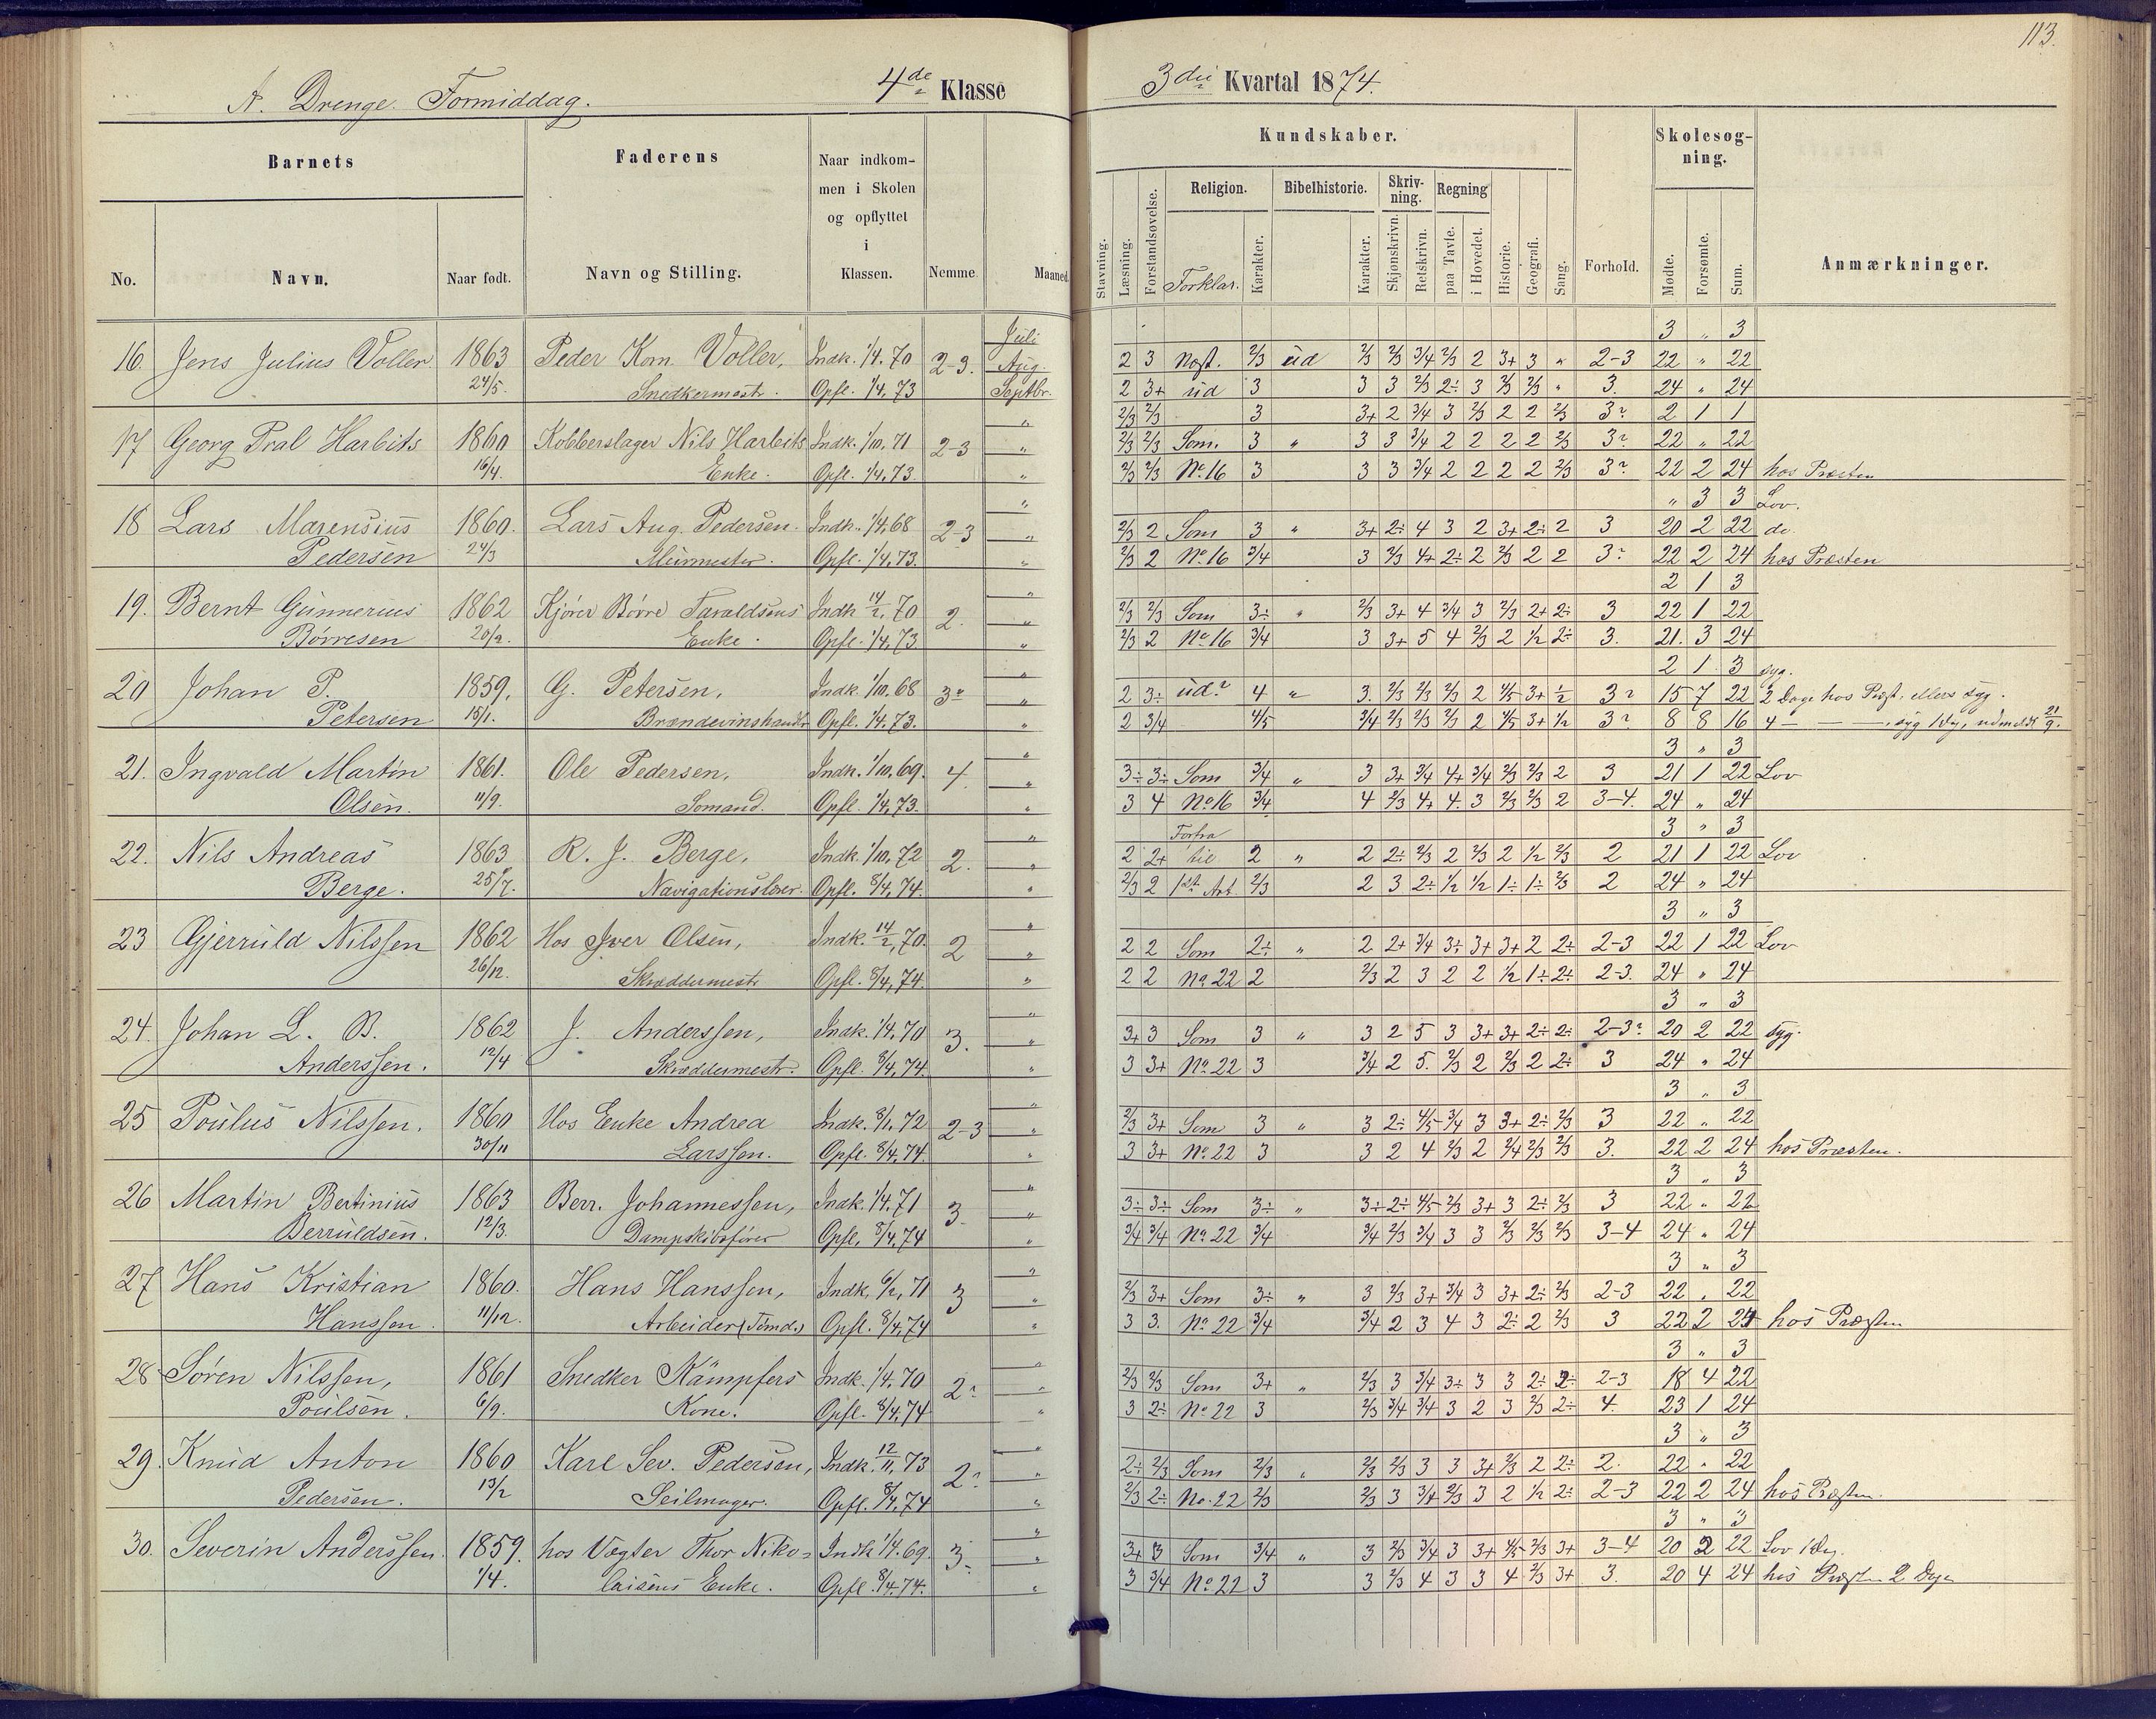 113.
A. Drenge. Formiddag. 4de Klasse
3die Kvartal 1874.
Barnets
Faderens
Naar indkom-
men i Skolen
og opflyttet
i
Klassen.
Nemme.
Maaned
No.
Navn.
Naar født.
Navn og Stilling.
Kundskaber.
Skolesøg-
ning.
Stavning.
Læsning.
Forstandsøvelse.
Religion.
Forklar.
Karakter.
Bibelhistorie.
Karakter.
Skriv-
ning.
Skjønskrivn.
Retskrivn.
Regning
paa Tavle.
i Hovedet.
Historie.
Geografi.
Sang.
Forhold.
Mødte.
Forsømte.
Sum.
Anmærkninger.
Juli 3 " 3
16. Jens Julius Voller. 1863 Peder Korn. Voller, Indk. 1/4. 70 2-3. Aug. 2 3 Næst. 2/3 ud 2/3 2/3 3/4 2/3 2 3+ 3 " 2-3 22 " 22
24/5. Snedkermestr. Opfl. 1/4, 73 Septbr. 2 3+ ud 3 3 3 2/3 2÷ 3 2/3 2/3 " 3. 24 " 24
" 2/3 2/3 3 3+ 2 3/4 3 2/3 2 2 2/3 3? 2 1 1
17 Georg Pral Harbits 1860 Kobberslager Nils Harbits Indk. 1/10, 71 2-3 " 2/3 2/3 Som. 3 " 3 3 3/4 2 2 2 2 2/3 3? 22 " 22
16/4. Enke. Opfl. 1/4, 73. " 2/3 2/3 No 16 3 3 3 3/4 2 2 2 2 2/3 3? 22 2 24 hos Præsten
" " 3 3 Lov.
18 Lars Marensius 1860. Lars Aug. Pedersen. Indk. 1/4, 68 2-3 " 2/3 2 Som 3 " 3+ 2÷ 4 3 2 3+ 2÷ 2 3 20 2 22 do.
Pedersen 24/3 Muirmester. Opfl. 1/4, 73. " 2/3 2 No 16 3/4 3 2/3 4+ 2÷ 2 2/3 2 2 3? 22 2 24 hos Præsten
" 2 1 3
19. Bernt Gunnerius 1862 Kjører Börre Taraldsens Indk 14/2, 70 2. " 2/3 2/3 Som 3÷ " 2/3 3+ 4 3/4 3 2/3 2+ 2÷ 3 22 1 22
Børresen 20/2. Enke. Opfl. 1/4, 73. " 2/3 2 No 16 3/4 3 3+ 5 4 2/3 2 1/2 2÷ 3. 21. 3 24
" 2 1 3 syg.
20 Johan P. 1859, G. Petersen, Indk. 1/10. 68 3? " 2 3÷ ud? 4 " 3. 2/3 2/3 2/3 2 4/5 3+ 1/2 3? 15 7 22 2 Dage hos Præst. ellers syg.
Petersen 15/1. Brændevinshandlr Opfl. 1/4, 73. " 2 3/4 4/5 3/4 2/3 2/3 2/3 2 4/5 3+ 1/2 3? 8 8 16 4 — —, syg 1 Dg, udmeldt 21/9.
" 3 " 3
21. Ingvald Martin 1861. Ole Pedersen, Indk. 1/10. 69. 4. " 3÷ 3÷ Som 3/4 " 3 3+ 3/4 4+ 3/4 2/3 2/3 2 3 21 1 22 Lov
Olsen. 11/9. Sømand. Opfl. 1/4, 73. " 3 4 No 16 3/4 4 2/3 4+ 4. 3 2/3 2/3 2 3-4. 24 " 24
" Forfra 3 " 3
22. Nils Andreas 1863 R. J. Berge, Indk. 1/10, 72 2. " 2 2+ til 2 " 2 2÷ 2/3 2 2/3 2 1/2 2/3 2 21 1 22 Lov
Berge. 25/7. Navigationslærer. Opfl. 8/4, 74. " 2/3 2 1st Art. 2/3 2 3 2÷ 1/2 1/2 1÷ 1÷ 2/3 2 24 " 24
" 3 " 3
23 Gjerruld Nilssen 1862 Hos Iver Olsen, Indk. 14/2, 70. 2 " 2 2 Som 2÷ " 2 2+ 3/4 3÷ 3+ 3+ 2 2÷ 2-3 22 1 22 Lov
26/12. Skræddermestr Opfl. 8/4, 74. " 2 2 No 22 2 2/3 2 3 2 2 1/2 1÷ 2÷ 2-3. 24 " 24
" 3 " 3
24. Johan L. B. 1862 J. Anderssen, Indk. 1/4, 70 3. " 3+ 3 Som 3 " 3 2 5 3 3+ 3+ 2÷ 2÷ 2-3? 20 2 22 syg.
Anderssen. 12/4 Skræddermestr. Opfl. 8/4, 74. " 3 3+ No 22 3 3/4 2 5. 2/3 2 2/3 2 2÷ 3 24 " 24
" 3 " 3
25 Poulus Nilssen. 1860 Hos Enke Andrea Indk. 8/1, 72 2-3 " 2/3 3+ Som 3 " 3 2÷ 4/5 3/4 3 3+ 2÷ 2/3 3 22 " 22
30/11 Larssen. Opfl. 8/4, 74. " 3 3+ No 22 3 3 2 4 2/3 2 2/4 2/3 2/3 3. 22 2 24 hos Præsten.
" 3 " 3
26 Martin Bertinius 1863 Berr. Johannessen, Indk. 1/4. 71 3. " 3÷ 3÷ Som 3÷ " 3÷ 2÷ 4/5 2/3 3+ 3 2÷ 2/3 3 22 " 22
Berruldsen. 12/3. Dampskibsfører Opfl. 8/4, 74 " 3/4 3/4 No 22 3/4 3/4 2/3 3/4 3 3 2/3 2/3 2/3 3-4 24 " 24
" 3 " 3
27 Hans Kristian 1860. Hans Hanssen, Indk. 6/2, 71 3 " 2/3 3+ Som 3÷ " 3 2/3 3+ 3/4 3 3+ 2÷ 2/3 2-3 22 " 22
Hanssen. 11/12. Arbeider (Tömd.) Opfl. 8/4, 74 " 3 3. No 22 3/4 3/4 2 3 4 3 2÷ 2 2/3 3 22 2 24 hos Præsten
" 3 " 3
28 Søren Nilssen, 1861 Snedker Kämpfers Indk. 1/4. 70 2? " 2/3 2/3 Som 3+ " 2/3 3 3/4 3÷ 3 3 2÷ 2÷ 2-3 18 4 22
Poulsen. 6/9. Kone. Opfl. 8/4, 74 " 3 2÷ No 22 3 2/3 3/4 3/4 3 2 3 2/3 2÷ 4. 23 1 24
" 3 " 3
29. Knud Anton 1860 Karl Sev. Pedersen, Indk. 12/11, 73 2? " 2÷ 2/3 Som 2/3 " 2/3 2/3 3 3 3+ 2/3 2 2÷ 2. 22 " 22
Pedersen. 13/2 Seilmager. Opfl. 8/4, 74 " 2/3 2÷ No. 22 2/3 2/3 3 3/4 2/3 3 2 1/2 2÷ 2-3 22 2 24 hos Præsten.
" 3 " 3
30. Severin Anderssen. 1859. hos Vægter Thor Niko= Indk 1/4. 69. 3. " 3+ 3 Som 3/4 " 3 2/3 3/4 3 3+ 4/5 2/3 3+ 3-4 20 2 22 Lov 1 Dg.
1/4. laisens Enke. Opfl. 8/4. 74. " 3 3/4 No 22 3 3 2/3 4 3 3 4 2/3 3+ 3. 20 4 24 hos Præsten 2 Dage